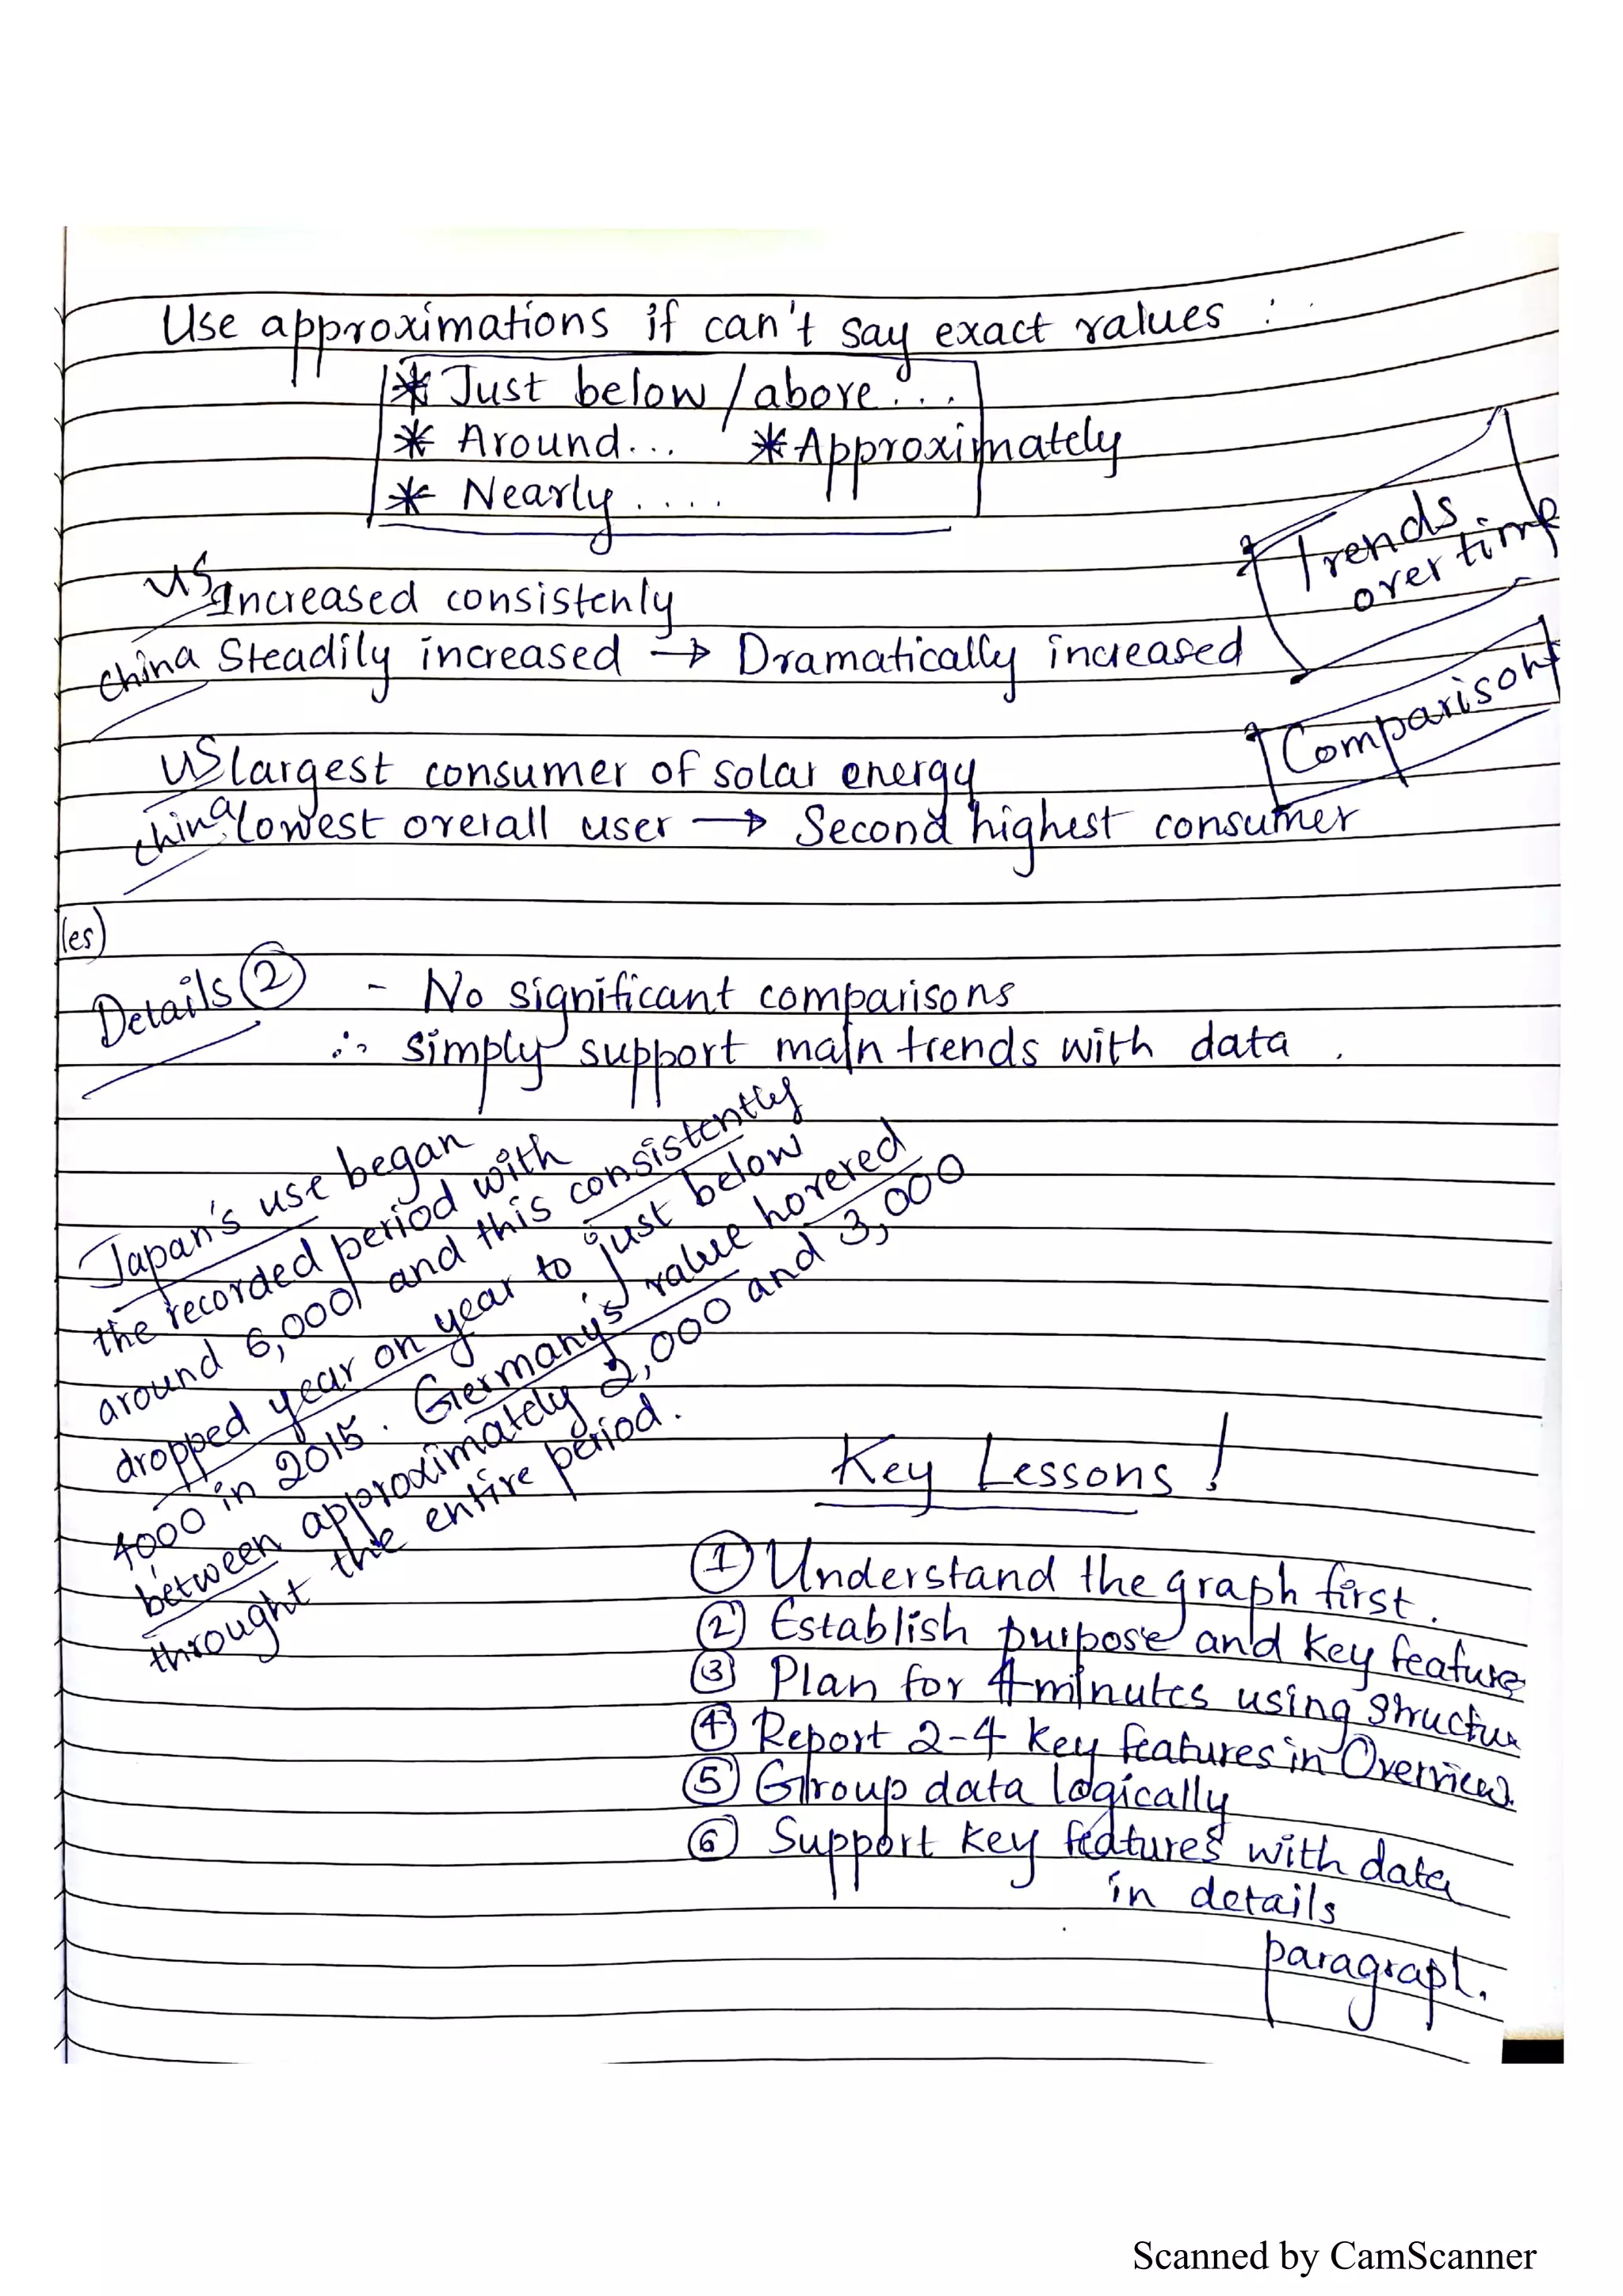 Use approximations if can't say exact values :
* Just below / above ...
* Around... * Approximately
* Nearly .....
Trends
over time
US Increased consistenly
China Steadily increased → Dramatically increased
Comparison
US largest consumer of solar energy
China lowest overall user → Second highest consumer
(es)
Details ② - No significant comparisons
∴ simply support main trends with data .
Japan's use began
the recorded period with
around 6,000 and this consistently
dropped year on year to just below
4000 in 2015. Germany's value hovered
between approximately 2,000 and 3,000
throught the entire period.
Key Lessons !
① Understand the graph first.
② Establish purpose and key features
③ Plan for 4 minutes using structu
④ Report 2-4 key features in Overview.
⑤ Group data logically
⑥ Support key features with data
in details
paragraph.
Scanned by CamScanner